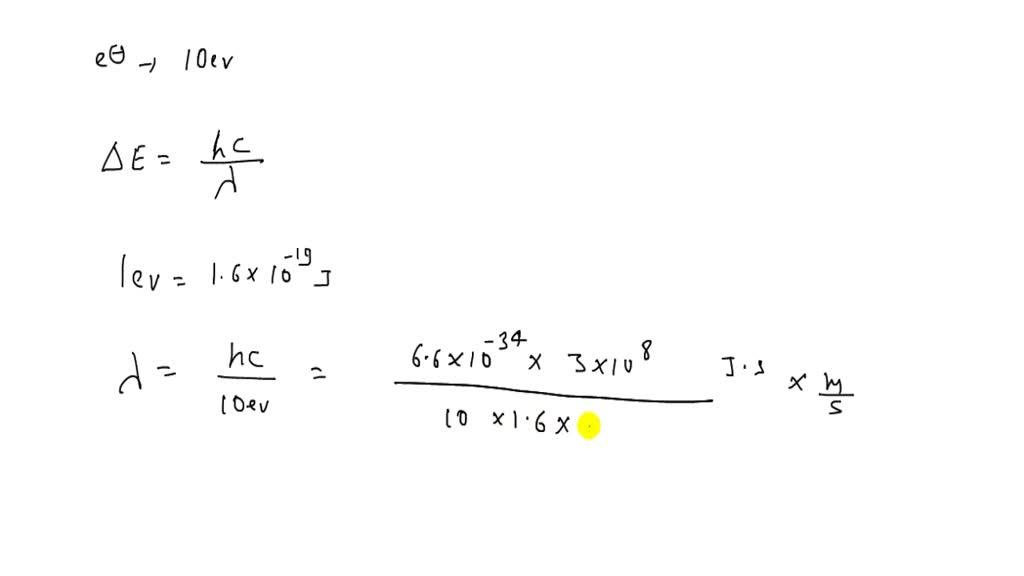 e⊖ → 10ev
ΔE = hc/λ
1ev = 1.6×10⁻¹⁹ J
λ = hc/10ev = 6.6×10⁻³⁴ × 3×10⁸ / 10 ×1.6× J.s × m/s